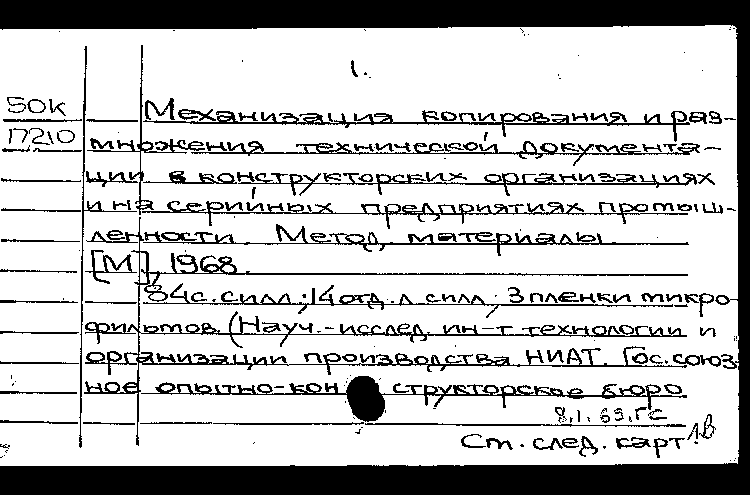 1.
50К Механизация копирования и раз-
П210 множения технической документа-
ции в конструкторских организациях
и на серийных предприятиях промыш-
ленности. Метод. материалы.
[М], 1968.
84с. силл; 14 отд. л. силл; 3 пленки микро-
фильмов. (Науч.-исслед. ин-т технологии и
организации производства НИАТ. Гос. союз-
ное опытно-конструкторское бюро
8.1.69.ГС
См. след. карт.